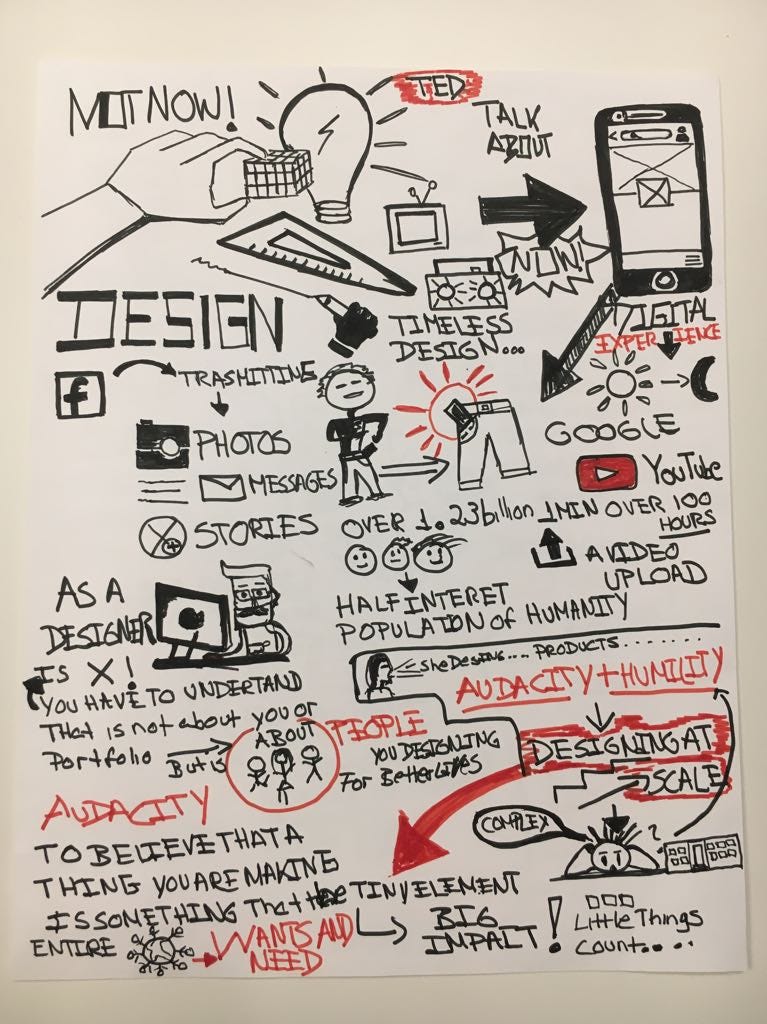 NOT NOW!
TED
TALK
ABOUT
NOW!
DESIGN
TIMELESS
DESIGN...
DIGITAL
EXPERIENCE
f
TRASMITTING
PHOTOS
MESSAGES
STORIES
GOOGLE
YouTube
OVER 1.23billion
1MIN OVER 100
HOURS
A VIDEO
UPLOAD
HALF INTERET
POPULATION of HUMANITY
AS A
DESIGNER
IS X!
YOU HAVE TO UNDERTAND
THAT is not about you or
Portfolio
But is
ABOUT
PEOPLE
YOU DESIGNING
For Better Lifes
She Desins.... PRODUCTS.........
AUDACITY + HUMILITY
DESIGNING AT
SCALE
COMPLEX
?
AUDACITY
TO BELIEVE THAT A
THING YOU ARE MAKING
IS SOMETHING That the
ENTIRE
WANTS AND
NEED
TINY ELEMENT
BIG
IMPAIT!
Little Things
Count....